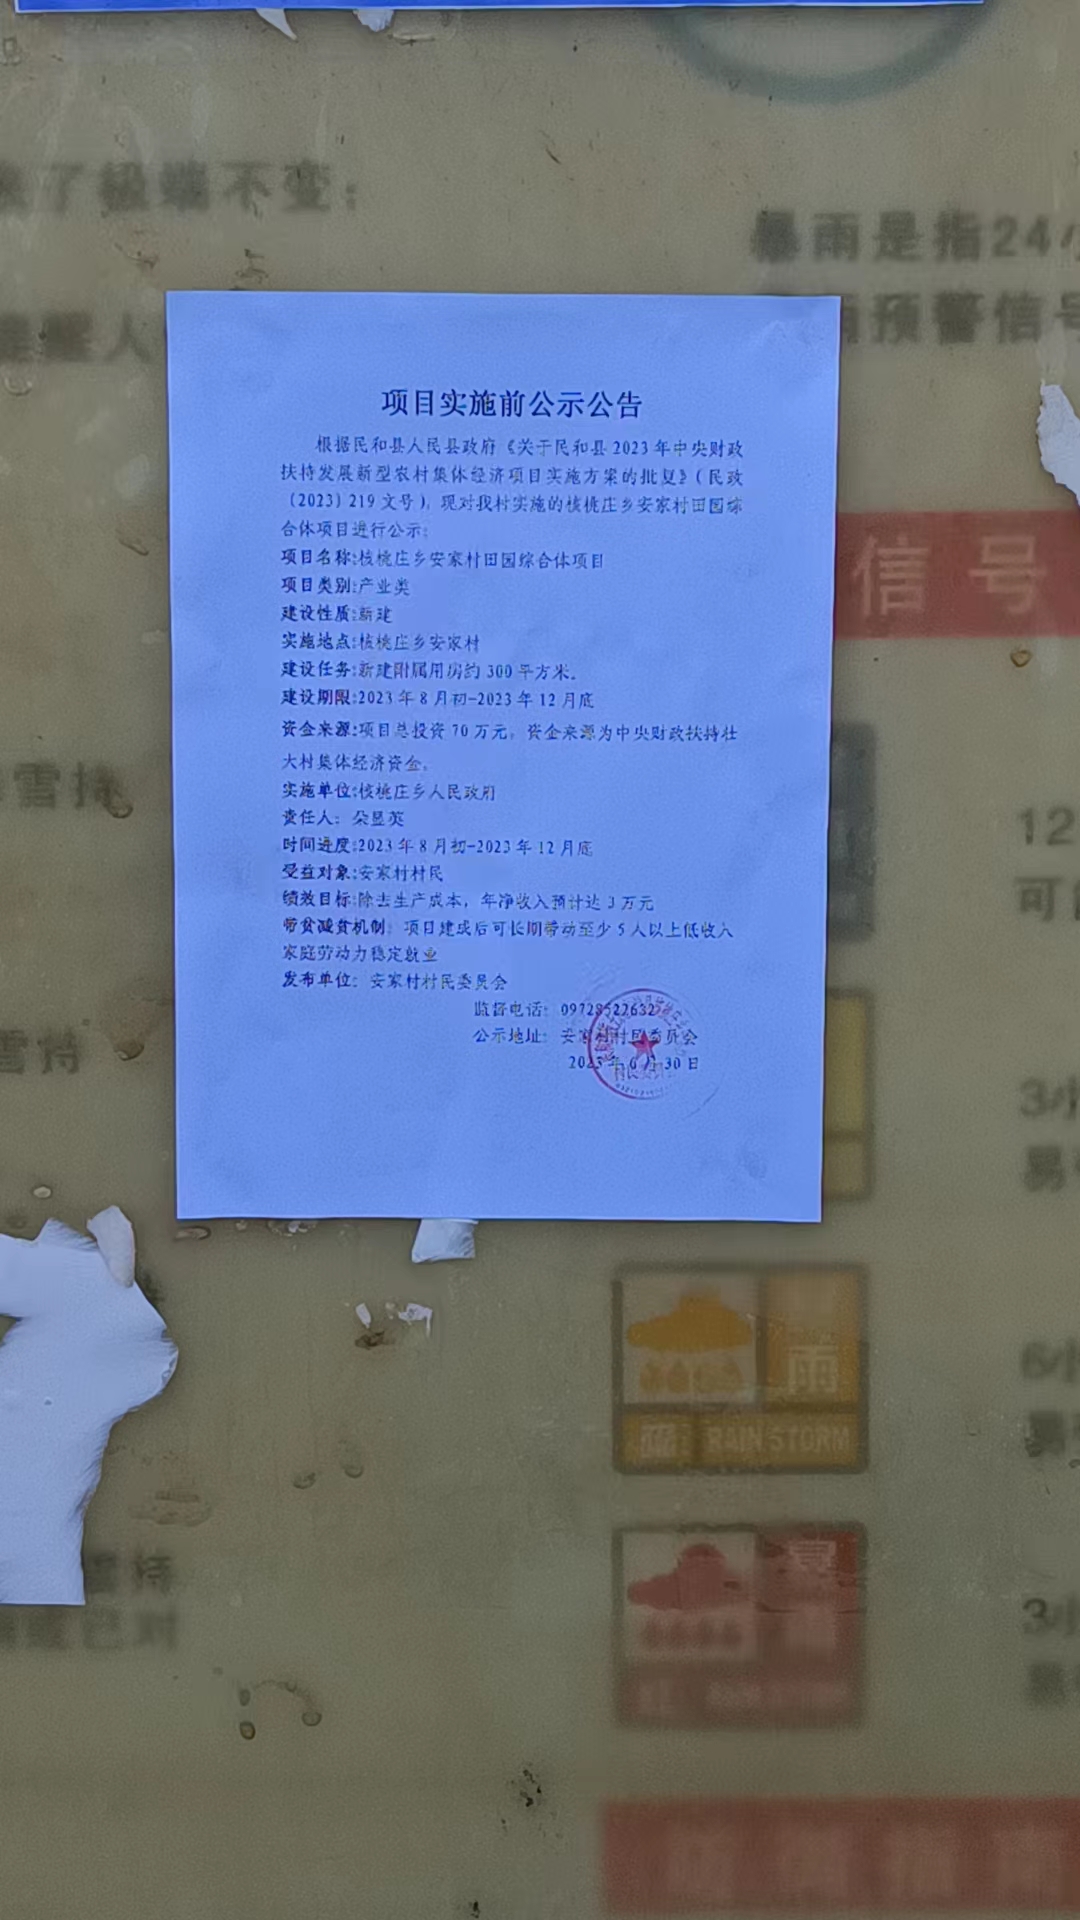 来了极端不变：
暴雨是指24小
预警信号
项目实施前公示公告
根据民和县人民县政府《关于民和县2023年中央财政
扶持发展新型农村集体经济项目实施方案的批复》（民政
〔2023〕219文号），现对我村实施的核桃庄乡安家村田园综
合体项目进行公示：
项目名称:核桃庄乡安家村田园综合体项目
项目类别:产业类
建设性质:新建
实施地点:核桃庄乡安家村
建设任务:新建附属用房约300平方米。
建设期限:2023年8月初-2023年12月底
资金来源:项目总投资70万元，资金来源为中央财政扶持壮
大村集体经济资金。
实施单位:核桃庄乡人民政府
责任人：朵昱英
时间进度:2023年8月初-2023年12月底
受益对象:安家村村民
绩效目标:除去生产成本，年净收入预计达3万元
带贫减贫机制：项目建成后可长期带动至少5人以上低收入
家庭劳动力稳定就业
发布单位：安家村村民委员会
监督电话：09728527632
公示地址：安家村村民委员会
2023年6月30日
信号
雪持
12
可
雪持
3小
易
雨
RAIN STORM
6小
3小